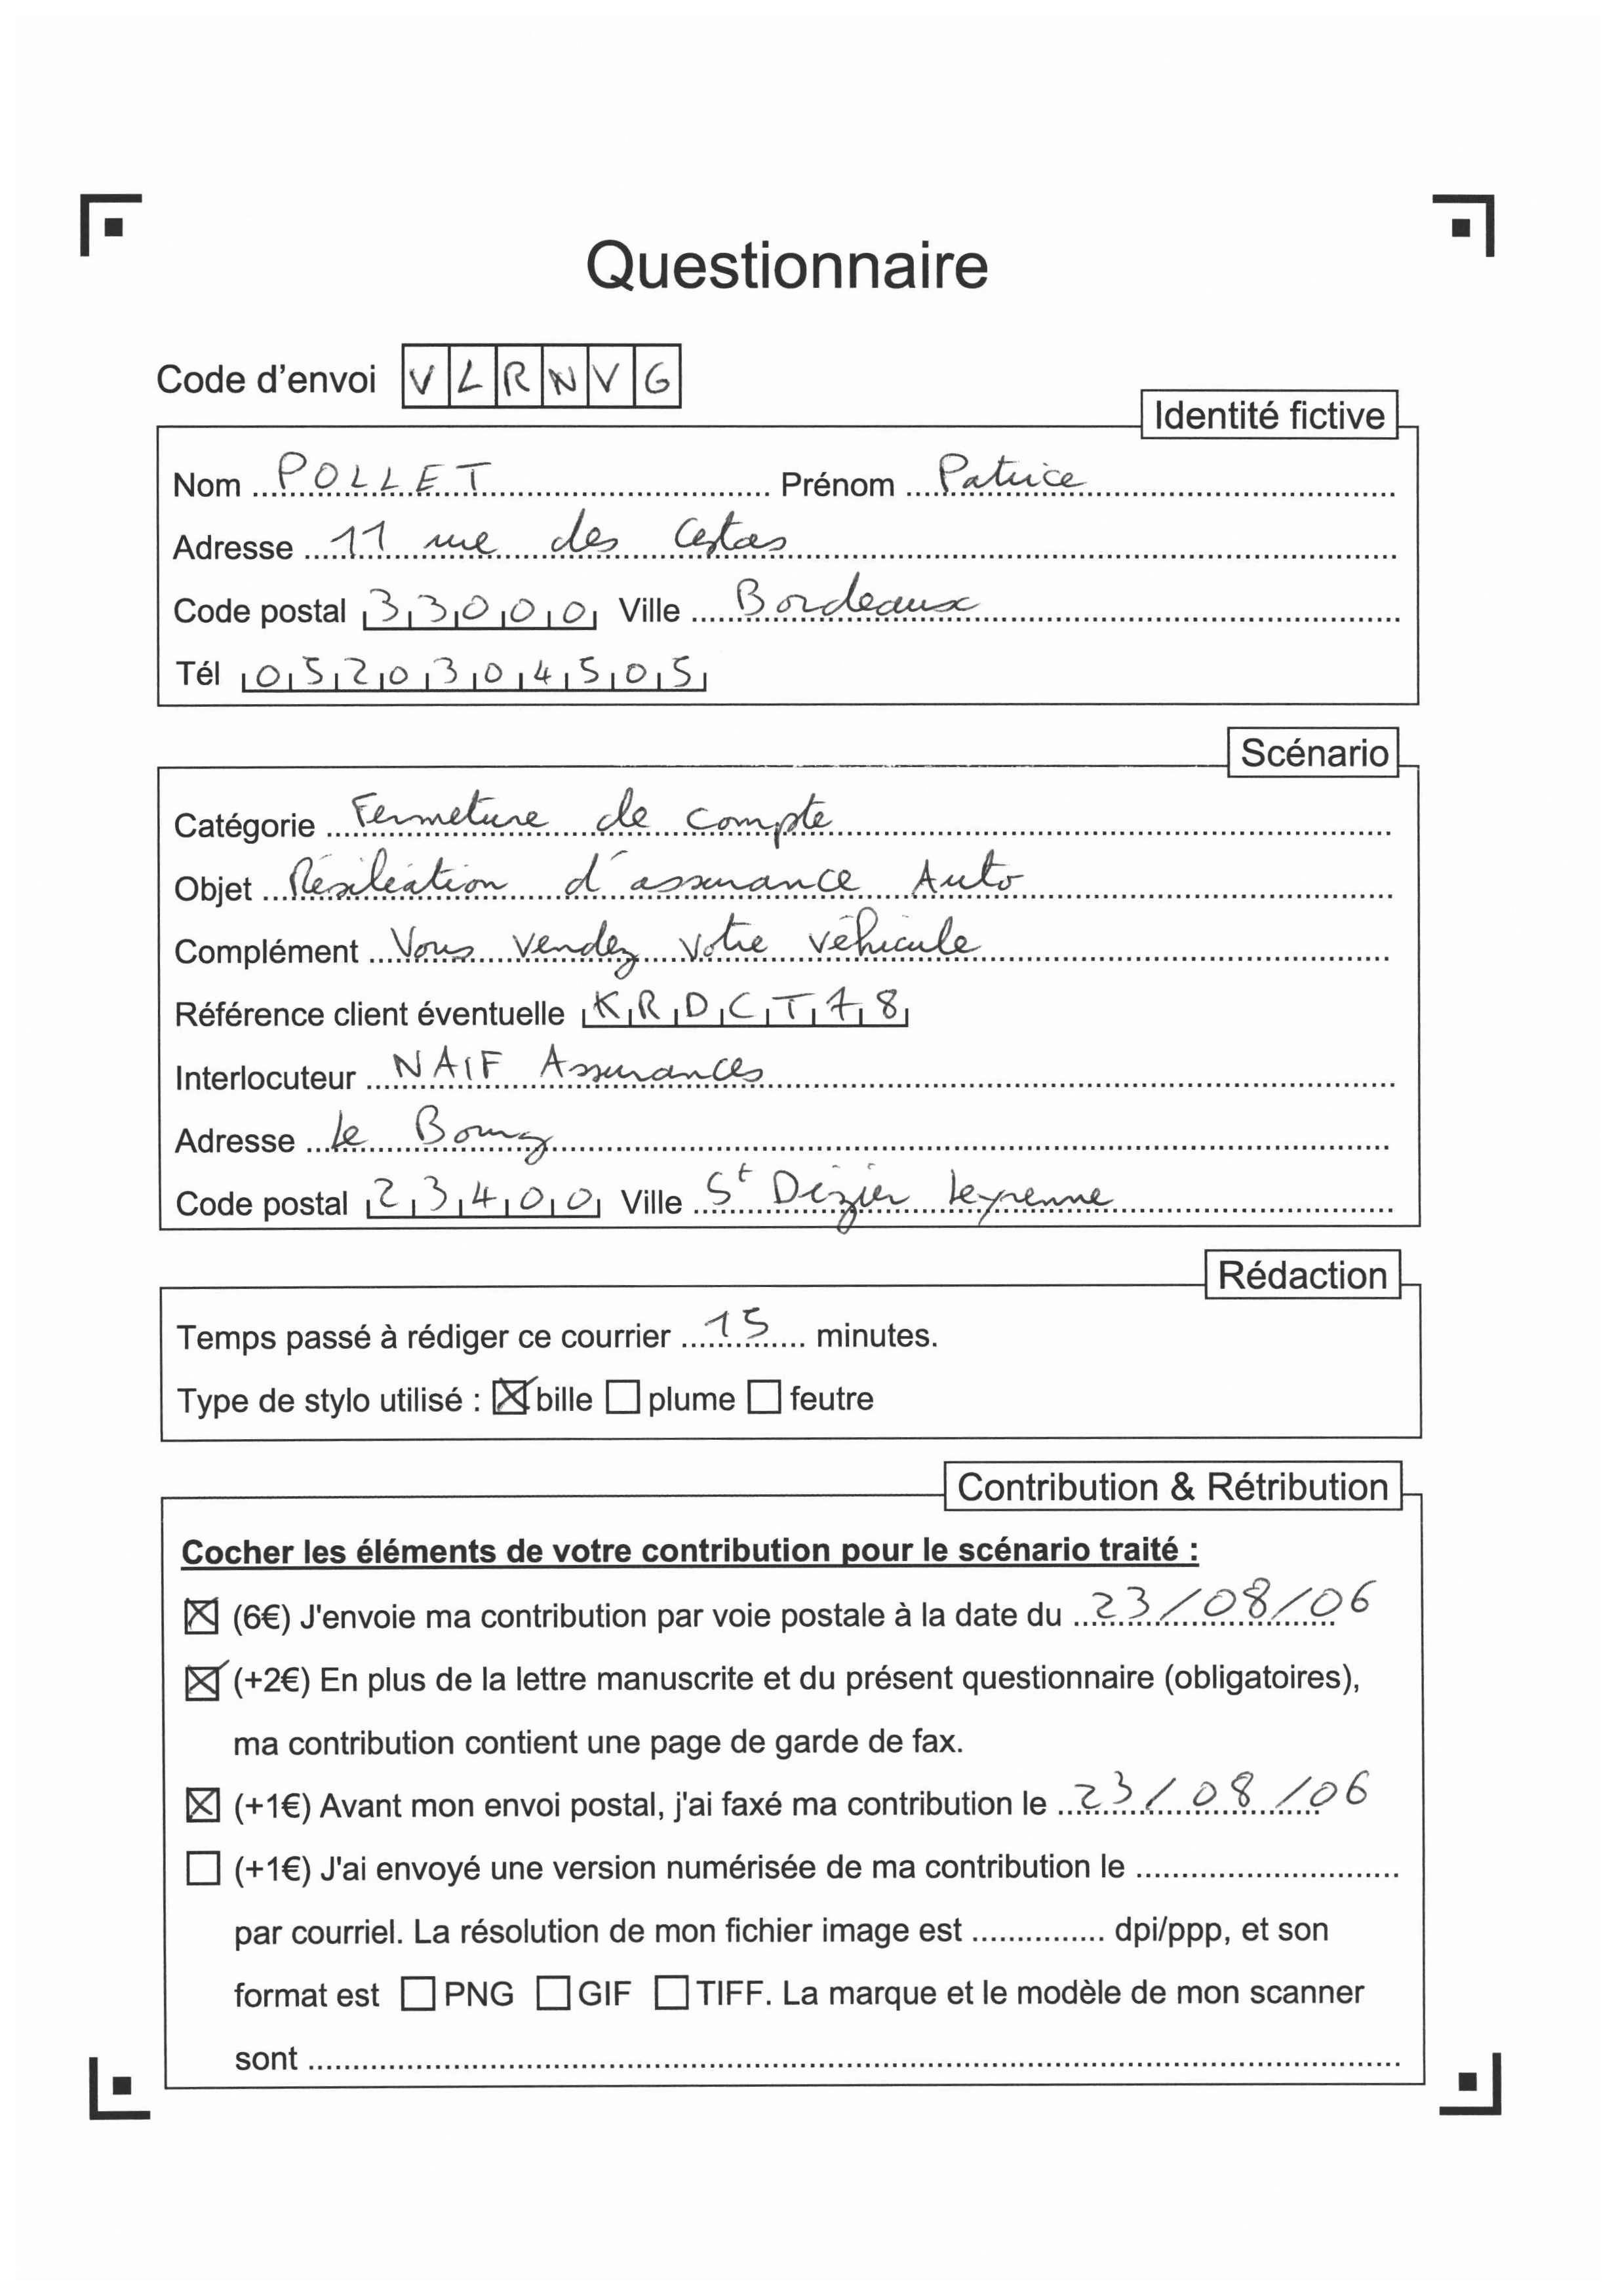 Questionnaire
Code d'envoi VLRNVG
Identité fictive
Nom POLLET Prénom Patrice
Adresse 11 rue des Cestas
Code postal 33000 Ville Bordeaux
Tél 0520304505
Scénario
Catégorie Fermeture de compte
Objet Résiliation d'assurance Auto
Complément Vous vendez votre véhicule
Référence client éventuelle KRDCT78
Interlocuteur NAIF Assurances
Adresse Le Bourg
Code postal 23400 Ville St Dizier Leyrenne
Rédaction
Temps passé à rédiger ce courrier 15 minutes.
Type de stylo utilisé : bille plume feutre
Contribution & Rétribution
Cocher les éléments de votre contribution pour le scénario traité :
(6€) J'envoie ma contribution par voie postale à la date du 23/08/06
(+2€) En plus de la lettre manuscrite et du présent questionnaire (obligatoires),
ma contribution contient une page de garde de fax.
(+1€) Avant mon envoi postal, j'ai faxé ma contribution le 23/08/06
(+1€) J'ai envoyé une version numérisée de ma contribution le
par courriel. La résolution de mon fichier image est dpi/ppp, et son
format est PNG GIF TIFF. La marque et le modèle de mon scanner
sont